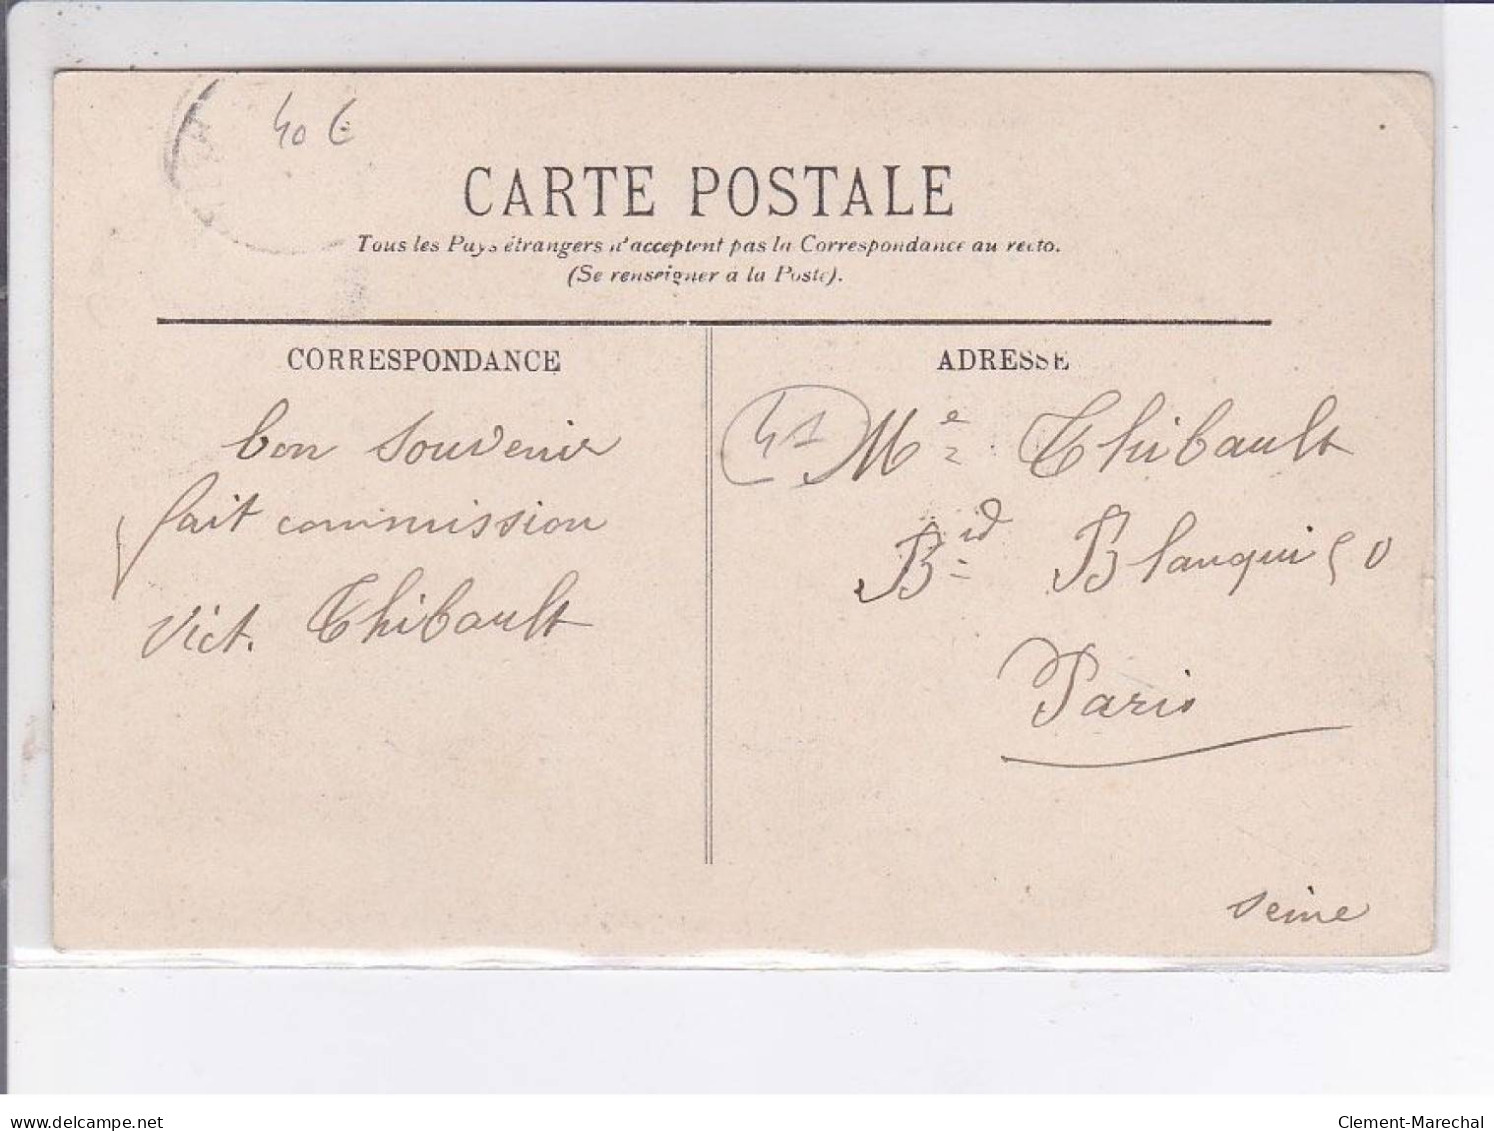 40 €
CARTE POSTALE
Tous les Pays étrangers n'acceptent pas la Correspondance au recto.
(Se renseigner à la Poste).
CORRESPONDANCE
bon souvenir
fait commission
Vict. Thibault
ADRESSE
41
Me Thibault
Bid Blanqui 50
Paris
Seine
www.delcampe.net
Clement-Marechal